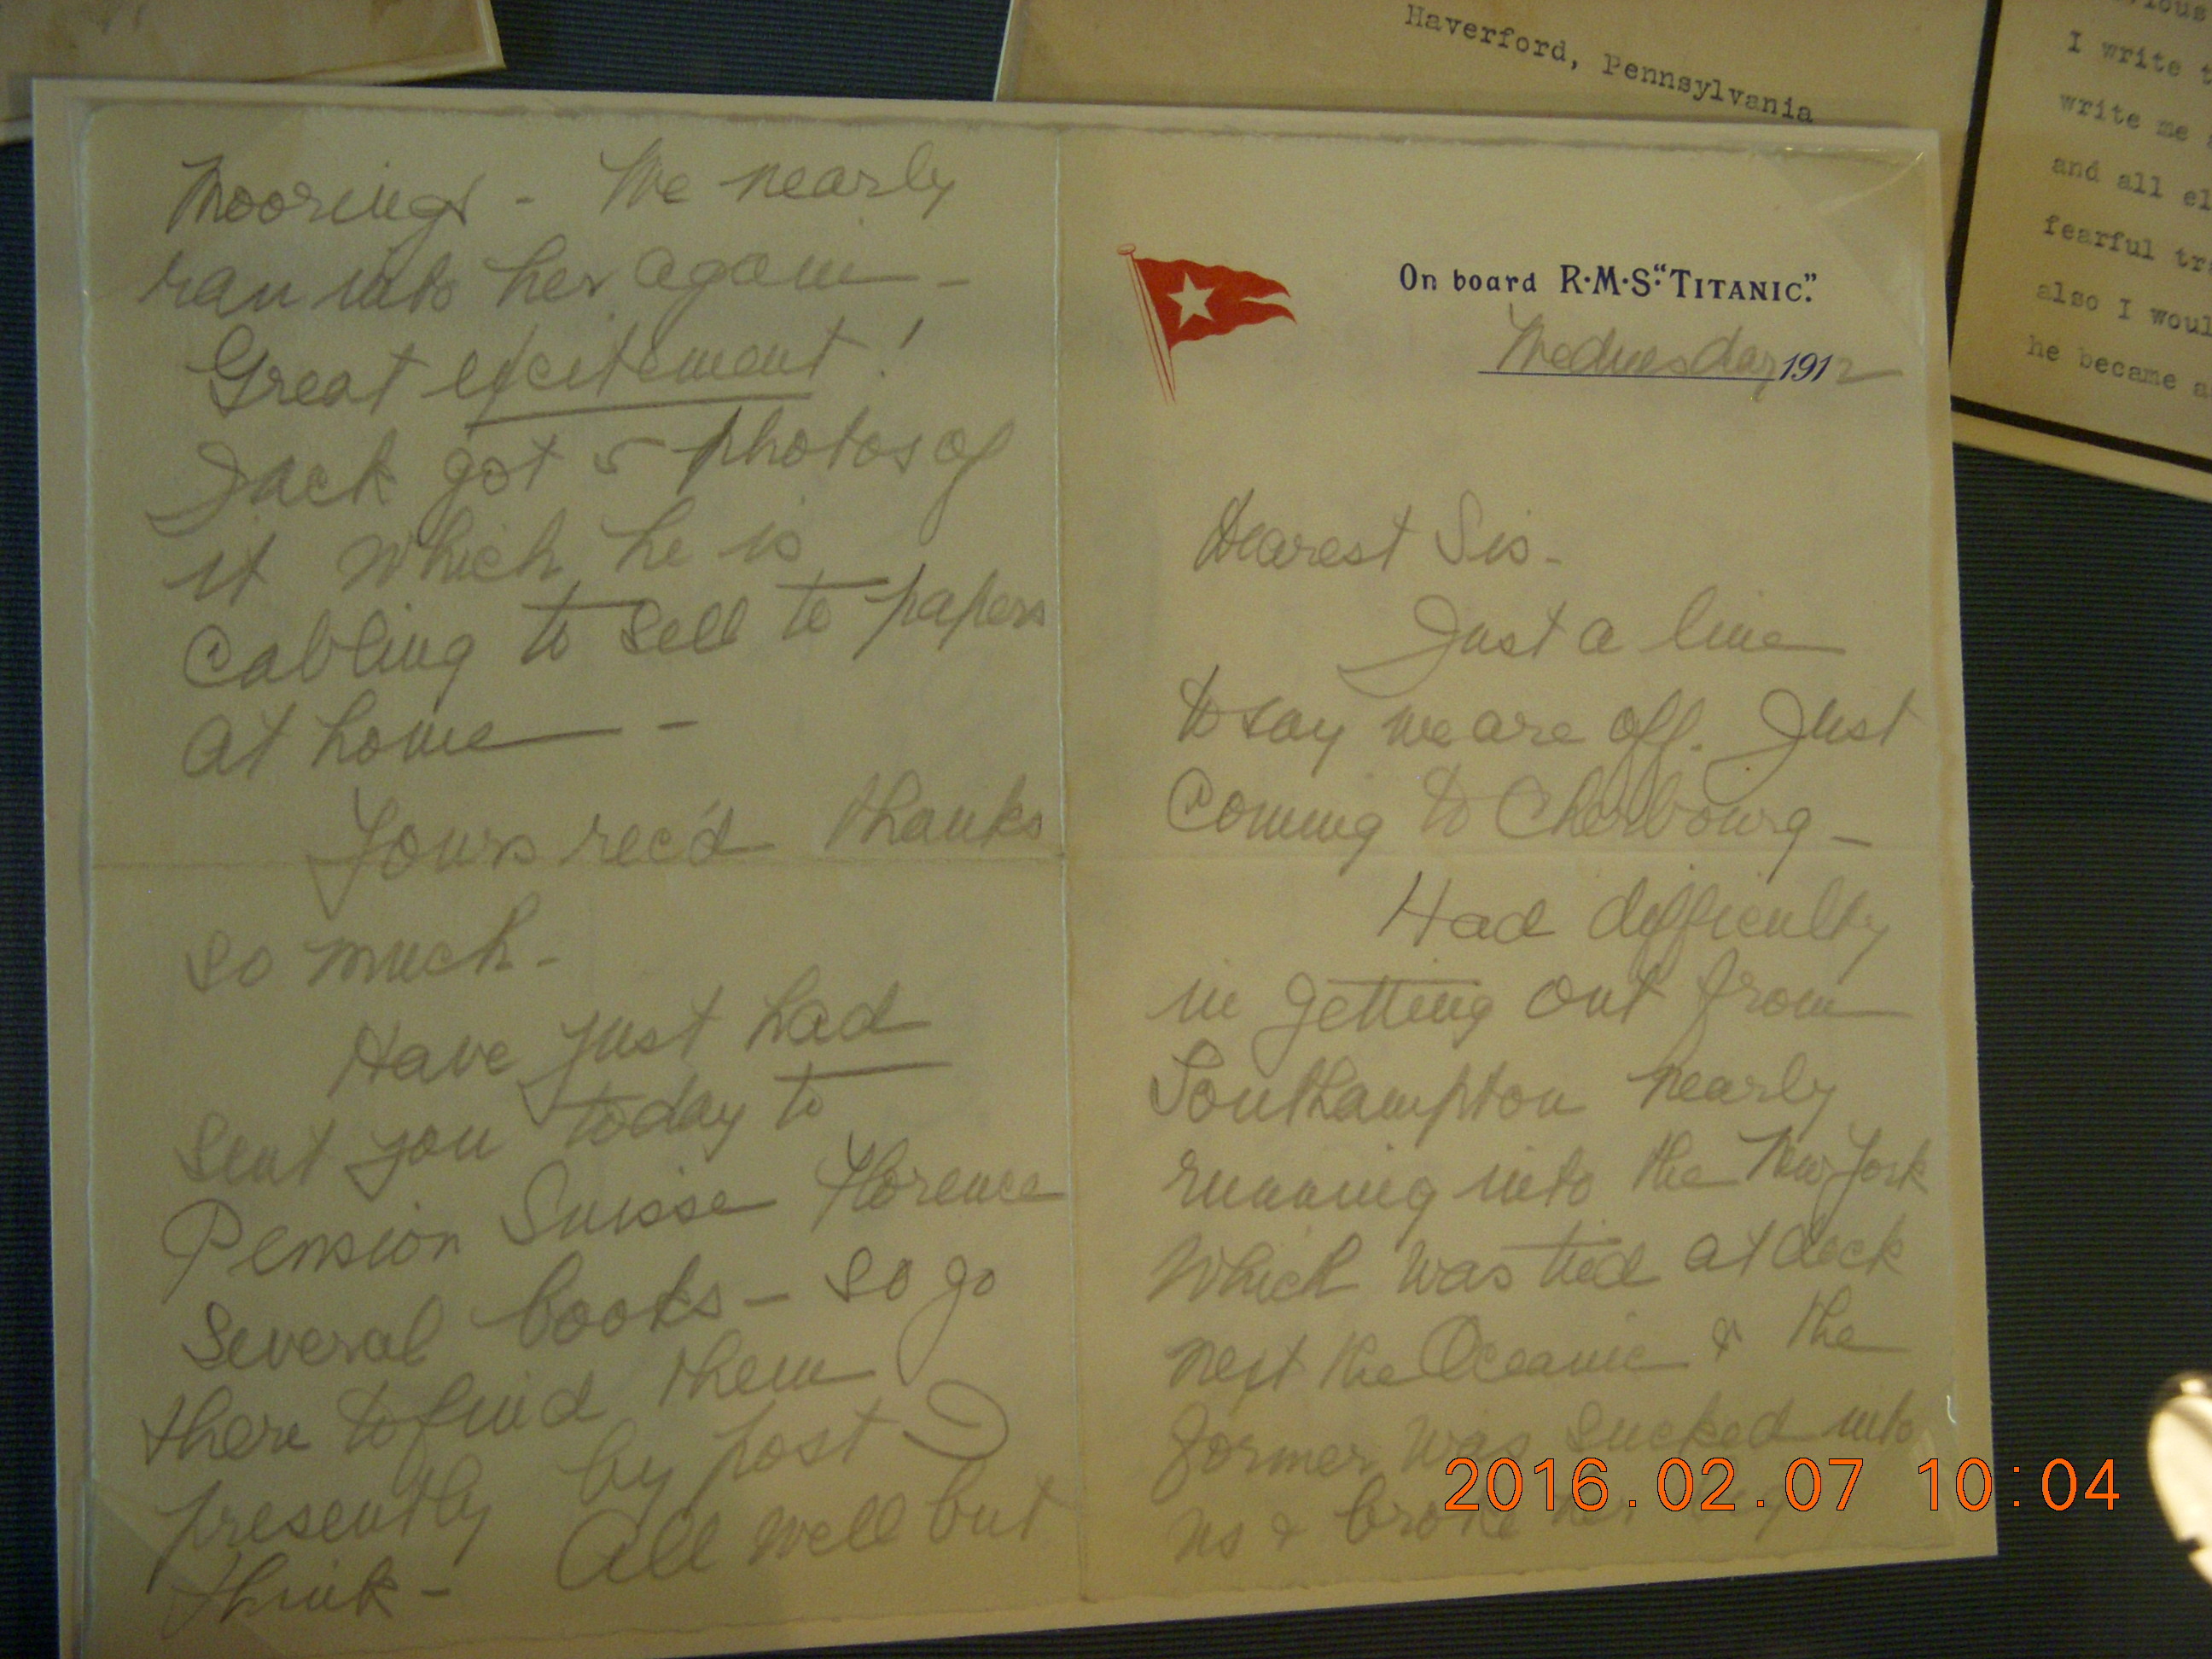 Haverford, Pennsylvania
I write
write me
and all
fearful
also I
he became
On board R·M·S· "TITANIC".
Wednesday 1912
Dearest Sis -
Just a line
to say we are off. Just
Coming to Cherbourg -
Had difficulty
in getting out from
Southampton nearly
running into the New York
which was tied at dock
next the Oceanic & the
former was sucked into
us & broke her big
Moorings - We nearly
ran into her again -
Great excitement!
Jack got 5 photos of
it which he is
Cabling to sell to papers
at home -
Yours rec'd thanks
so much -
Have just had
sent you today to
Pension Suisse Florence
Several books - so go
there to find them
presently by post I
think - All well but
2016.02.07 10:04